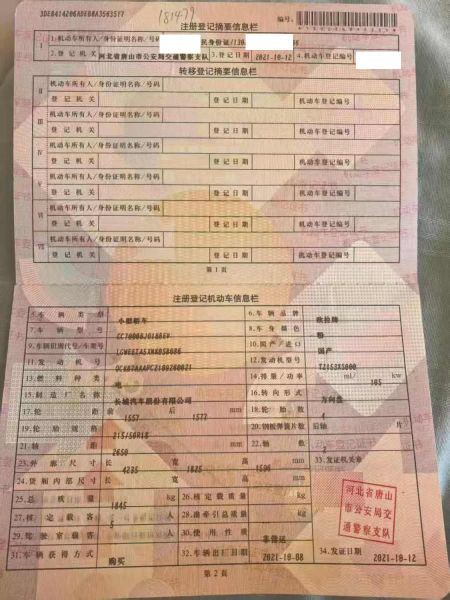 3DE0414206
181477
注册登记摘要信息栏
编号:
I 1.机动车所有人/身份证明名称/号码 民身份证/130
2.登记机关 河北省唐山市公安局交通警察支队 3.登记日期 2021-10-12 4.机动车登记编号
转移登记摘要信息栏
II 机动车所有人/身份证明名称/号码
登记机关 登记日期 机动车登记编号
III 机动车所有人/身份证明名称/号码
登记机关 登记日期 机动车登记编号
IV 机动车所有人/身份证明名称/号码
登记机关 登记日期 机动车登记编号
V 机动车所有人/身份证明名称/号码
登记机关 登记日期 机动车登记编号
VI 机动车所有人/身份证明名称/号码
登记机关 登记日期 机动车登记编号
VII 机动车所有人/身份证明名称/号码
登记机关 登记日期 机动车登记编号
第1页
注册登记机动车信息栏
5.车辆类型 小型轿车 6.车辆品牌 欧拉牌
7.车辆型号 8.车身颜色 粉
9.车辆识别代号/车架号 10.国产/进口 国产
11.发动机号 12.发动机型号
13.燃料种类 电 14.排量/功率 ml/ 105 kw
15.制造厂名称 长城汽车股份有限公司 16.转向形式 方向盘
17.轮距 前 1557 后 1577 mm 18.轮胎数 4
19.轮胎规格 215/50R18 20.钢板弹簧片数 后轴 片
21.轴距 2650 mm 22.轴数 2
23.外廓尺寸 长 4235 宽 1825 高 1596 mm 33.发证机关章
24.货厢内部尺寸 长 宽 高 mm
25.总质量 1845 kg 26.核定载质量 kg
27.核定载客 5 人 28.准牵引总质量 kg
29.驾驶室载客 人 30.使用性质 非营运
31.车辆获得方式 购买 32.车辆出厂日期 2021-10-08 34.发证日期 2021-10-12
河北省唐山
市公安局交
通警察支队
第2页